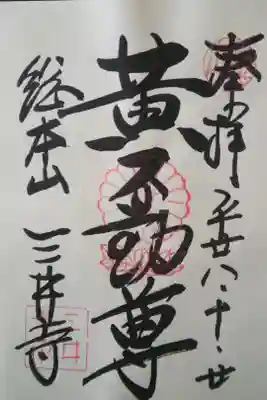 奉拝 平廿八・十・廿
黄不動尊
総本山 三井寺